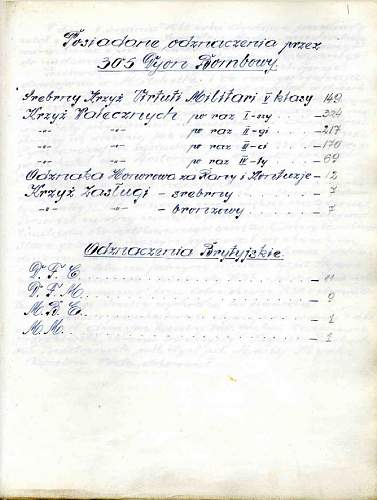 Posiadane odznaczenia przez
305 Dyon Bombowy.
Srebrny Krzyż Virtuti Militari V klasy - 149
Krzyż Walecznych po raz I-szy . . . - 324
-"- -"- po raz II-gi . . . - 217
-"- -"- po raz II-ci . . . - 170
-"- -"- po raz IV-ty . . . - 69
Odznaka Honorowa za Rany i Kontuzje - 12
Krzyż Zasługi - srebrny . . . . - 7
-"- -"- - bronzowy . . . . - 7
Odznaczenia Brytyjskie.
D. F. C. . . . . . . . . . . . - 11
D. F. M. . . . . . . . . . . . - 9
M. B. E. . . . . . . . . . . . - 1
M. M. . . . . . . . . . . . . - 1